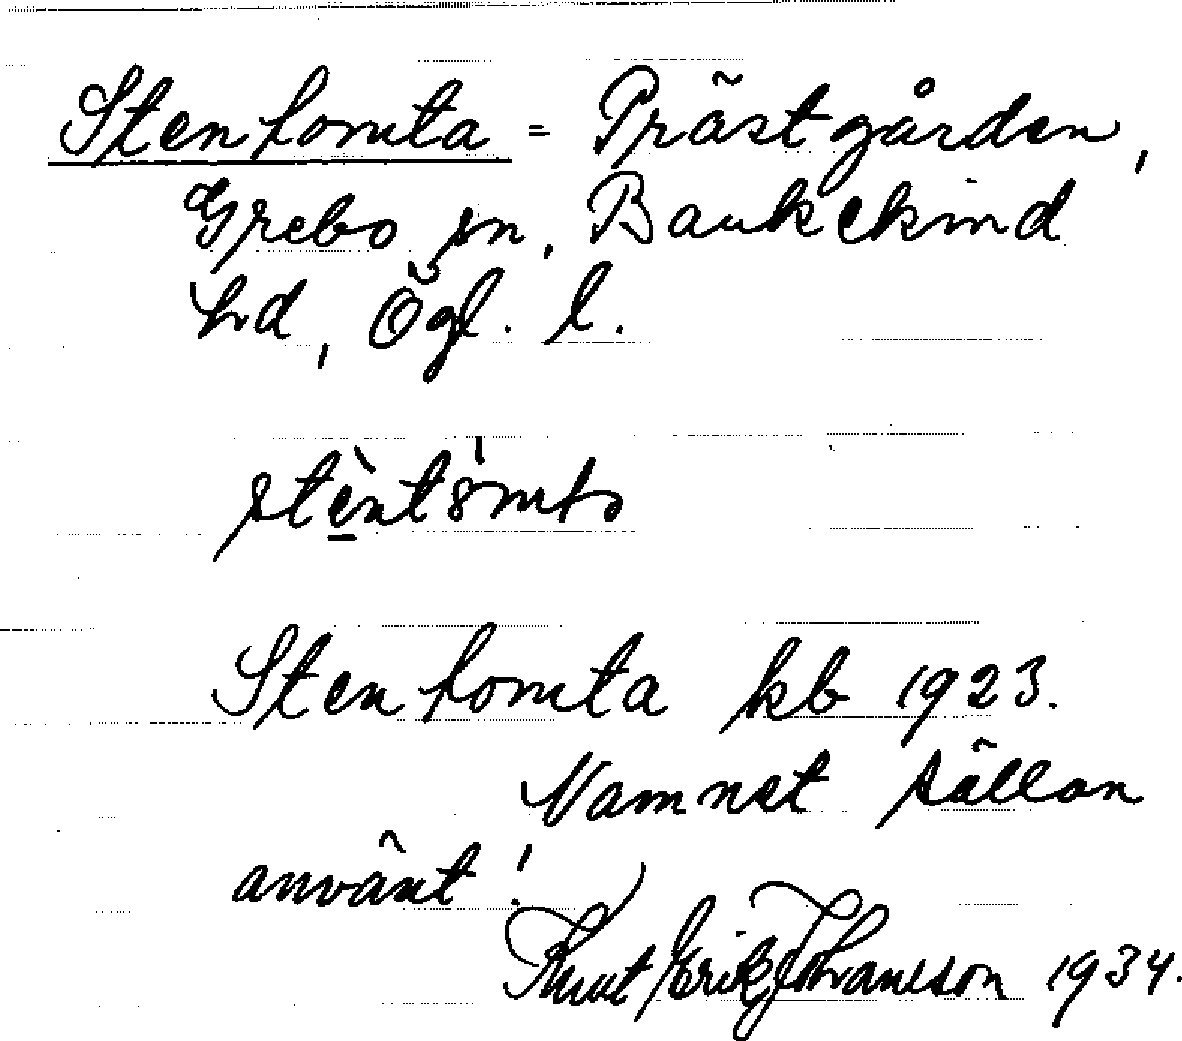 Stentomta = Prästgården,
Grebo sn, Bankekind
hd, Ögl. l.
Stentomta kb 1923.
Namnet sällan
använt!
Knut Erik Johansson 1934.